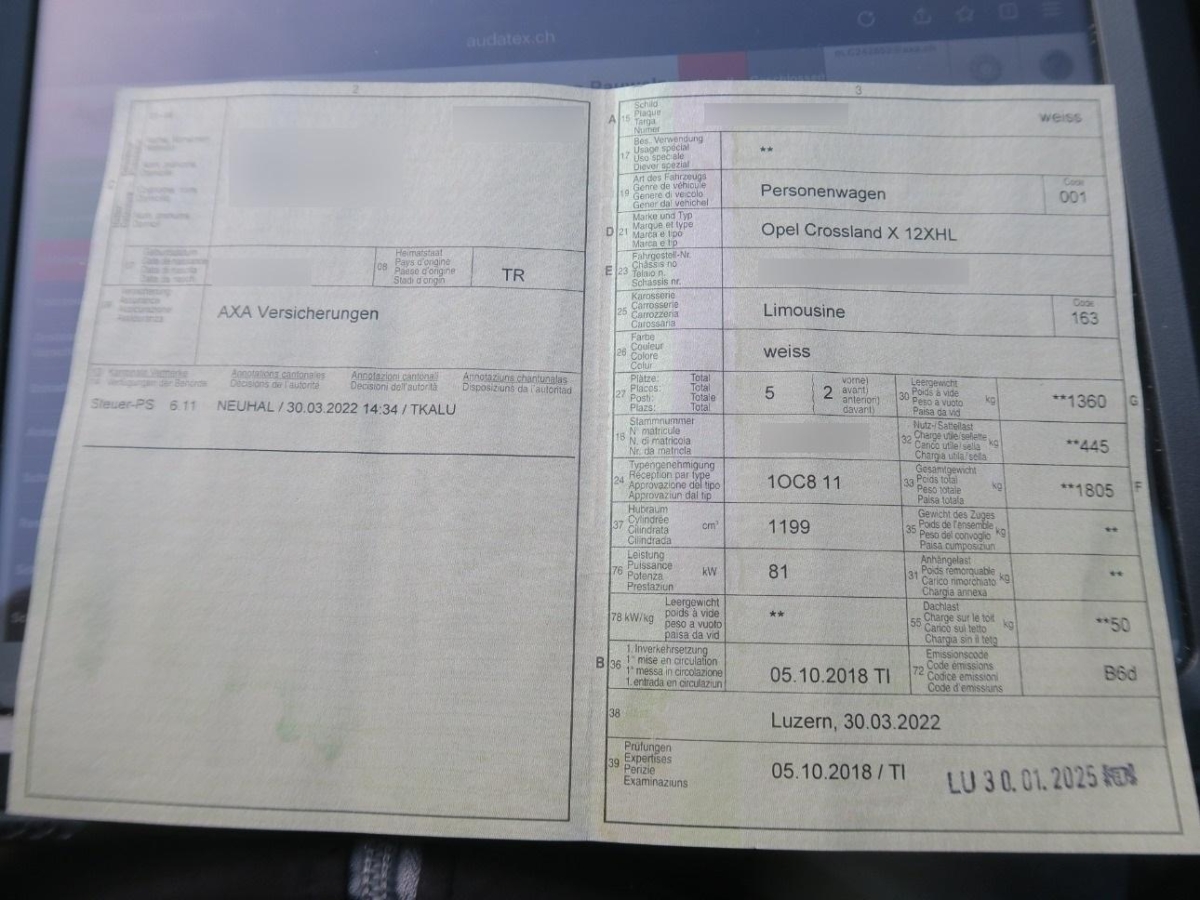 audatex.ch
2
Heimatstaat
08 Pays d'origine
Paese d'origine
Stadi d'origin
TR
AXA Versicherungen
Annotations cantonales
Annotazioni cantonali
Annotaziuns chantunalas
Verfügungen der Behörde
Décisions de l'autorité
Decisioni dell'autorità
Disposiziuns da l'autoritad
Steuer-PS 6.11 NEUHAL / 30.03.2022 14:34 / TKALU
3
A 15 Schild
Plaque
Targa
Numer
weiss
17 Bes. Verwendung
Usage spécial
Uso speciale
Diever spezial
**
19 Art des Fahrzeugs
Genre de véhicule
Genere di veicolo
Gener dal vehichel
Personenwagen
Code
001
D 21 Marke und Typ
Marque et type
Marca e tipo
Marca e tip
Opel Crossland X 12XHL
E 23 Fahrgestell-Nr.
Châssis no
Telaio n.
Schassis nr.
25 Karosserie
Carrosserie
Carrozzeria
Carossaria
Limousine
Code
163
26 Farbe
Couleur
Colore
Colur
weiss
27 Plätze: Total
Places: Total
Posti: Totale
Plazs: Total
5
2 vorne)
avant)
anteriori)
davant)
30 Leergewicht
Poids à vide
Peso a vuoto
Paisa da vid
kg
**1360 G
18 Stammnummer
N° matricule
N. di matricola
Nr. da matricla
32 Nutz-/Sattellast
Charge utile/sellette
Carico utile/sella
Chargia utila/sella
kg
**445
24 Typengenehmigung
Réception par type
Approvazione del tipo
Approvaziun dal tip
1OC8 11
33 Gesamtgewicht
Poids total
Peso totale
Paisa totala
kg
**1805 F
37 Hubraum
Cylindrée
Cilindrata
Cilindrada
cm³
1199
35 Gewicht des Zuges
Poids de l'ensemble
Peso del convoglio
Paisa cumposiziun
kg
**
76 Leistung
Puissance
Potenza
Prestaziun
kW
81
31 Anhängelast
Poids remorquable
Carico rimorchiato
Chargia annexa
kg
**
78 kW/kg Leergewicht
poids à vide
peso a vuoto
paisa da vid
**
55 Dachlast
Charge sur le toit
Carico sul tetto
Chargia sin il tetg
kg
**50
B 36 1. Inverkehrsetzung
1re mise en circulation
1a messa in circolazione
1. entrada en circulaziun
05.10.2018 TI
72 Emissionscode
Code émissions
Codice emissioni
Code d'emissiuns
B6d
38
Luzern, 30.03.2022
39 Prüfungen
Expertises
Perizie
Examinaziuns
05.10.2018 / TI
LU 30.01.2025